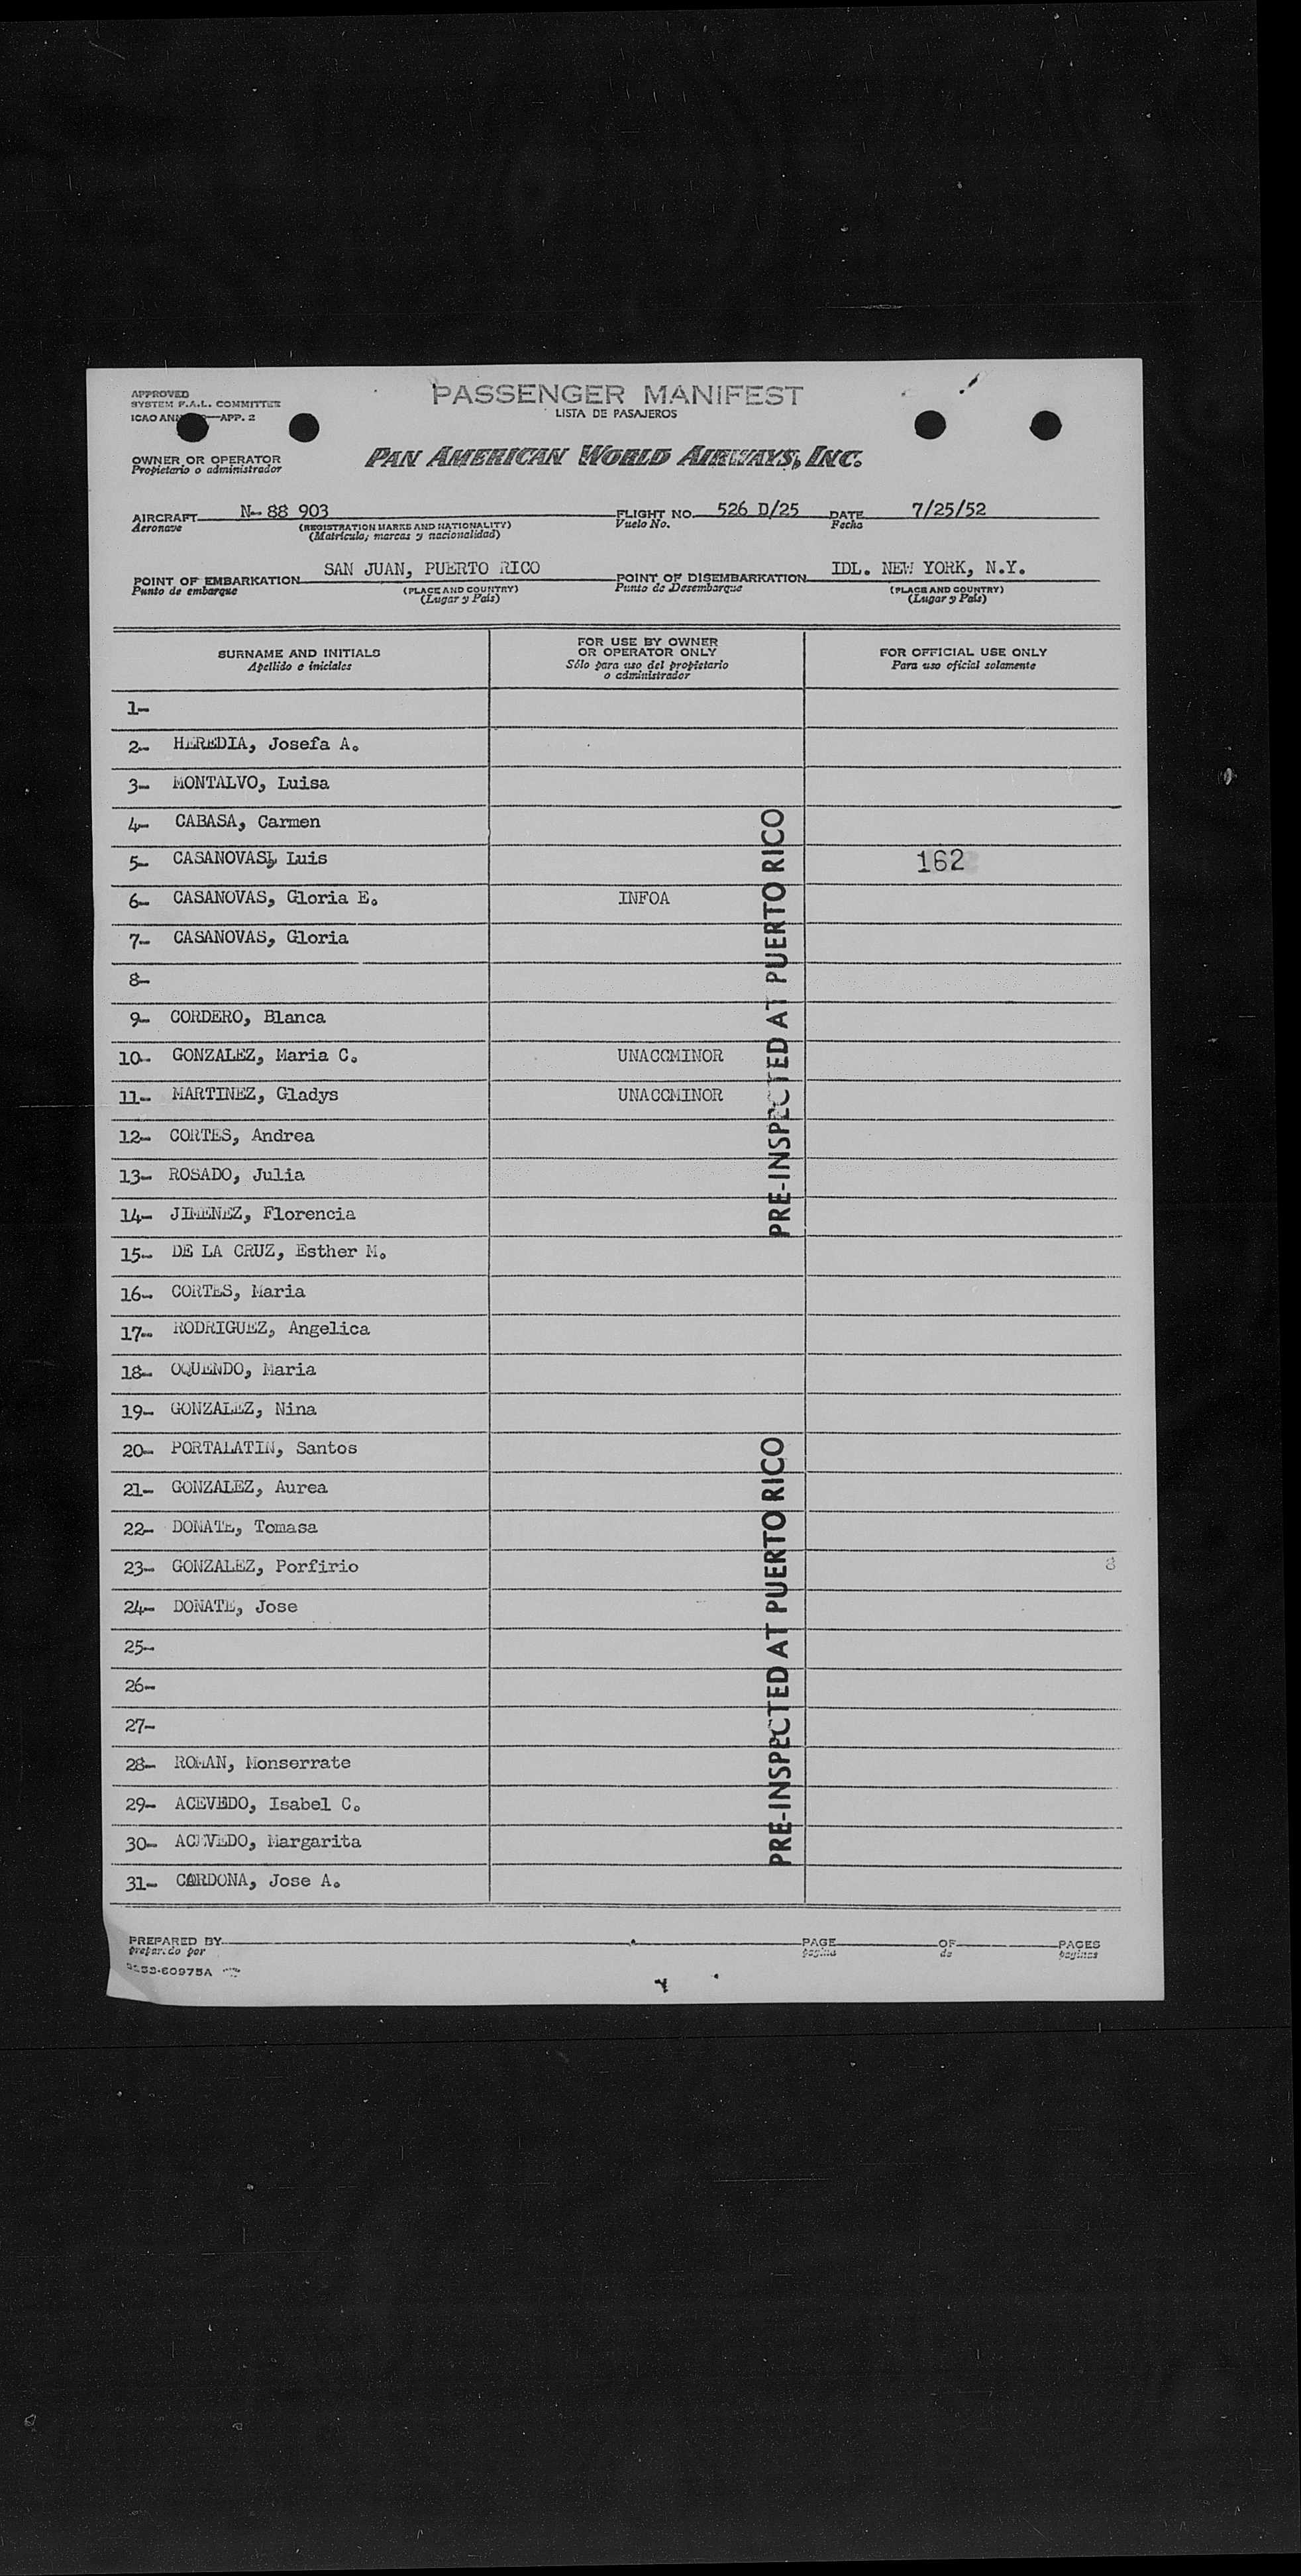 APPROVED
SYSTEM F.A.L. COMMITTEE
ICAO ANN APP. 2
PASSENGER MANIFEST
LISTA DE PASAJEROS
OWNER OR OPERATOR
Propietario o administrador
PAN AMERICAN WORLD AIRWAYS, INC.
AIRCRAFT N-88 903 FLIGHT NO. 526 D/25 DATE 7/25/52
Aeronave (REGISTRATION MARKS AND NATIONALITY) Vuelo No. Fecha
(Matricula, marcas y nacionalidad)
POINT OF EMBARKATION SAN JUAN, PUERTO RICO POINT OF DISEMBARKATION IDL. NEW YORK, N.Y.
Punto de embarque (PLACE AND COUNTRY) Punto de Desembarque (PLACE AND COUNTRY)
(Lugar y País) (Lugar y País)
SURNAME AND INITIALS
Apellido e iniciales
FOR USE BY OWNER
OR OPERATOR ONLY
Sólo para uso del propietario
o administrador
FOR OFFICIAL USE ONLY
Para uso oficial solamente
1-
2- HEREDIA, Josefa A.
3- MONTALVO, Luisa
4- CABASA, Carmen
5- CASANOVAS, Luis 162
6- CASANOVAS, Gloria E. INFOA
7- CASANOVAS, Gloria
8-
9- CORDERO, Blanca
10- GONZALEZ, Maria C. UNACCMINOR
11- MARTINEZ, Gladys UNACCMINOR
12- CORTES, Andrea
13- ROSADO, Julia
14- JIMENEZ, Florencia
15- DE LA CRUZ, Esther M.
16- CORTES, Maria
17- RODRIGUEZ, Angelica
18- OQUENDO, Maria
19- GONZALEZ, Nina
20- PORTALATIN, Santos
21- GONZALEZ, Aurea
22- DONATE, Tomasa
23- GONZALEZ, Porfirio
24- DONATE, Jose
25-
26-
27-
28- ROMAN, Monserrate
29- ACEVEDO, Isabel C.
30- ACEVEDO, Margarita
31- CARDONA, Jose A.
PRE-INSPECTED AT PUERTO RICO
PRE-INSPECTED AT PUERTO RICO
PREPARED BY PAGE OF PAGES
preparado por pagina de paginas